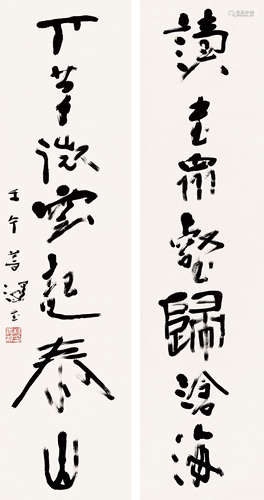 讀書眾壑歸滄海
下筆微雲起泰山
壬午